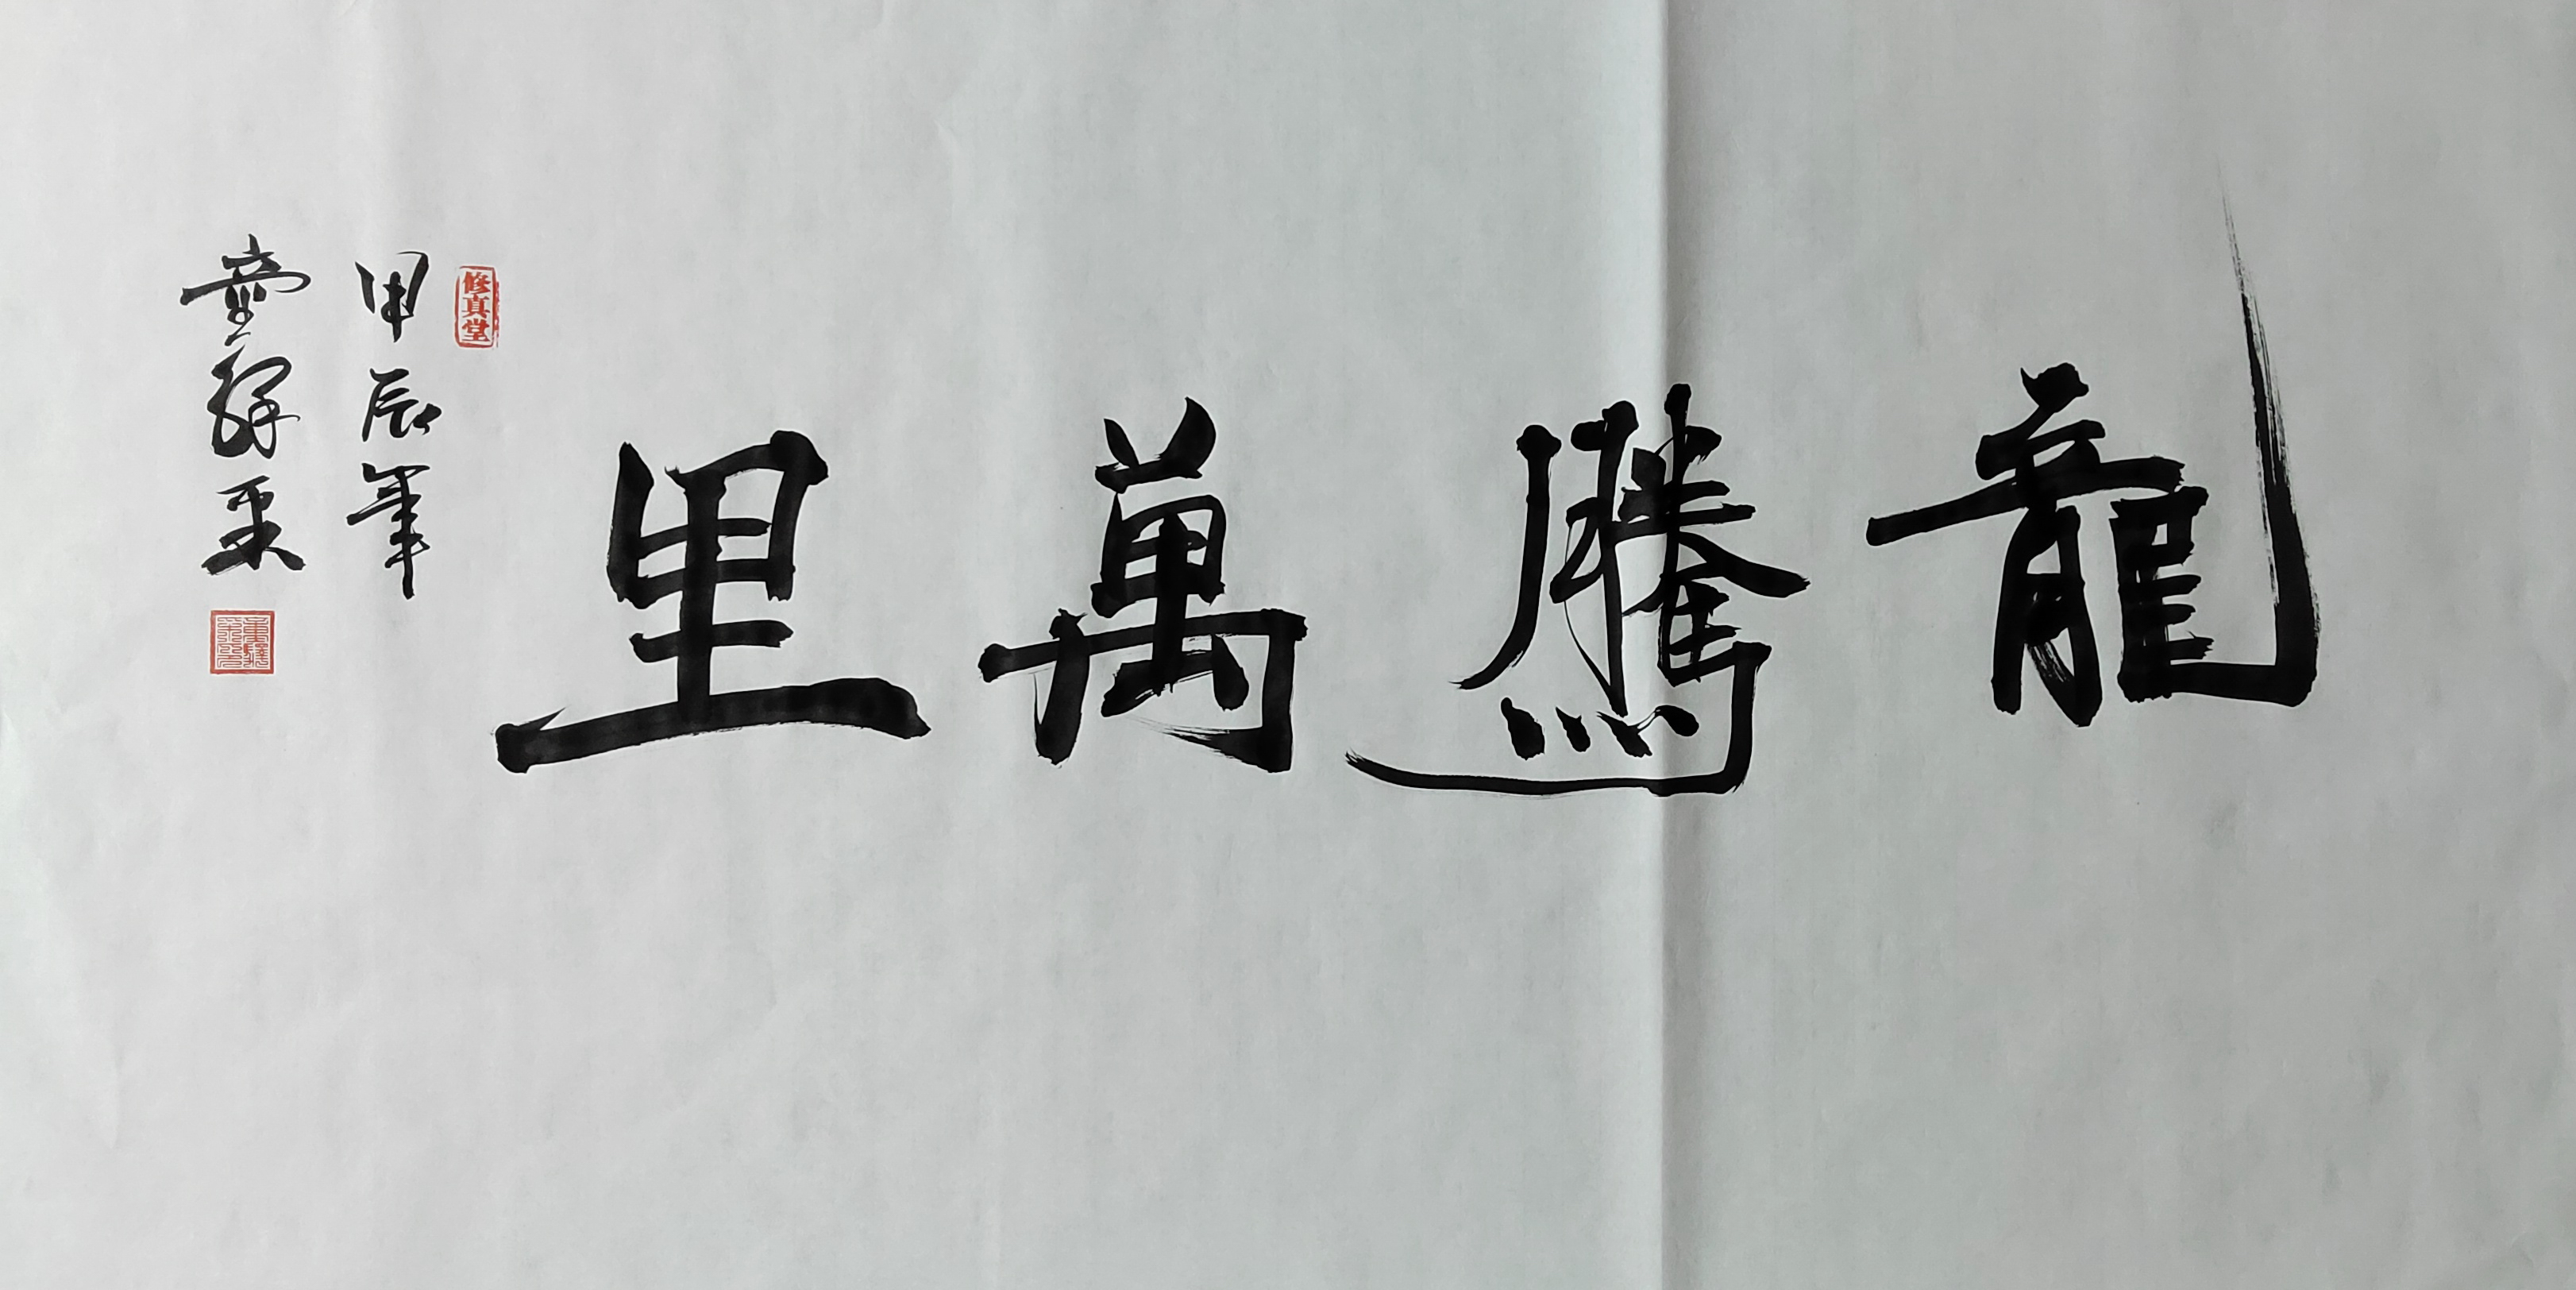 龍騰萬里
修真堂
甲辰年